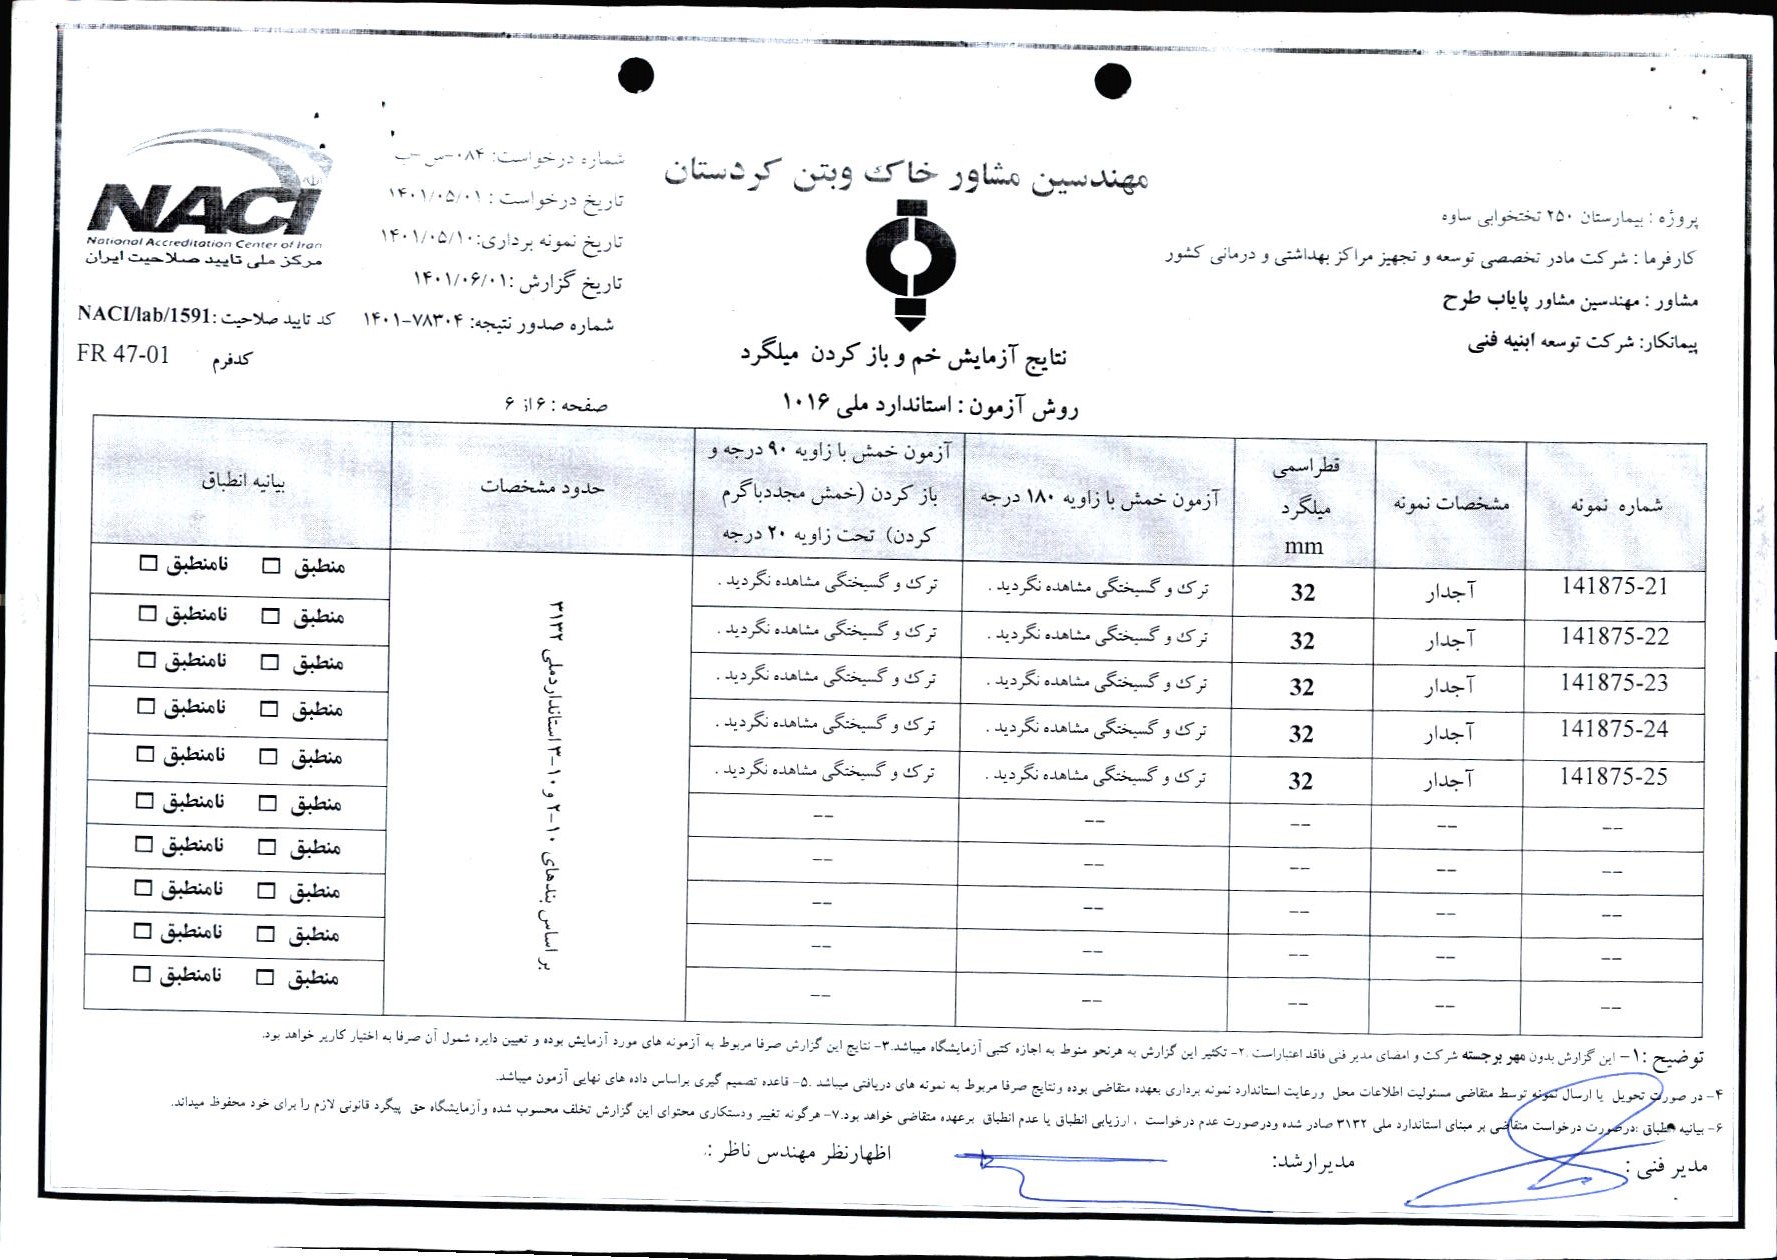 مهندسین مشاور خاک وبتن کردستان
پروژه : بیمارستان ۲۵۰ تختخوابی ساوه
کارفرما : شرکت مادر تخصصی توسعه و تجهیز مراکز بهداشتی و درمانی کشور
مشاور : مهندسین مشاور پایاب طرح
پیمانکار: شرکت توسعه ابنیه فنی
شماره درخواست: ۰۸۴-س-ب
تاریخ درخواست : ۱۴۰۱/۰۵/۰۱
تاریخ نمونه برداری: ۱۴۰۱/۰۵/۱۰
تاریخ گزارش : ۱۴۰۱/۰۶/۰۱
شماره صدور نتیجه: ۷۸۳۰۴-۱۴۰۱
NACI
National Accreditation Center of Iran
مرکز ملی تایید صلاحیت ایران
کد تایید صلاحیت :NACI/lab/1591
کدفرم FR 47-01
نتایج آزمایش خم و باز کردن میلگرد
روش آزمون : استاندارد ملی ۱۰۱۶
صفحه : ۶ از ۶
شماره نمونه | مشخصات نمونه | قطراسمی میلگرد mm | آزمون خمش با زاویه ۱۸۰ درجه | آزمون خمش با زاویه ۹۰ درجه و باز کردن (خمش مجددباگرم کردن) تحت زاویه ۲۰ درجه | حدود مشخصات | بیانیه انطباق
141875-21 | آجدار | 32 | ترک و گسیختگی مشاهده نگردید . | ترک و گسیختگی مشاهده نگردید . | بر اساس بندهای ۱۰-۲ و ۱۰-۳ استانداردملی ۳۱۳۲ | منطبق □ نامنطبق □
141875-22 | آجدار | 32 | ترک و گسیختگی مشاهده نگردید . | ترک و گسیختگی مشاهده نگردید . | منطبق □ نامنطبق □
141875-23 | آجدار | 32 | ترک و گسیختگی مشاهده نگردید . | ترک و گسیختگی مشاهده نگردید . | منطبق □ نامنطبق □
141875-24 | آجدار | 32 | ترک و گسیختگی مشاهده نگردید . | ترک و گسیختگی مشاهده نگردید . | منطبق □ نامنطبق □
141875-25 | آجدار | 32 | ترک و گسیختگی مشاهده نگردید . | ترک و گسیختگی مشاهده نگردید . | منطبق □ نامنطبق □
-- | -- | -- | -- | -- | منطبق □ نامنطبق □
-- | -- | -- | -- | -- | منطبق □ نامنطبق □
-- | -- | -- | -- | -- | منطبق □ نامنطبق □
-- | -- | -- | -- | -- | منطبق □ نامنطبق □
-- | -- | -- | -- | -- | منطبق □ نامنطبق □
توضیح :۱- این گزارش بدون مهر برجسته شرکت و امضای مدیر فنی فاقد اعتباراست .۲- تکثیر این گزارش به هرنحو منوط به اجازه کتبی آزمایشگاه میباشد.۳- نتایج این گزارش صرفا مربوط به آزمونه های مورد آزمایش بوده و تعیین دایره شمول آن صرفا به اختیار کاربر خواهد بود.
۴- در صورت تحویل یا ارسال نمونه توسط متقاضی مسئولیت اطلاعات محل ورعایت استاندارد نمونه برداری بعهده متقاضی بوده ونتایج صرفا مربوط به نمونه های دریافتی میباشد .۵- قاعده تصمیم گیری براساس داده های نهایی آزمون میباشد.
۶- بیانیه انطباق :درصورت درخواست متقاضی بر مبنای استاندارد ملی ۳۱۳۲ صادر شده ودرصورت عدم درخواست ، ارزیابی انطباق یا عدم انطباق برعهده متقاضی خواهد بود.۷- هرگونه تغییر ودستکاری محتوای این گزارش تخلف محسوب شده وآزمایشگاه حق پیگرد قانونی لازم را برای خود محفوظ میداند.
مدیر فنی : مدیرارشد: اظهارنظر مهندس ناظر :